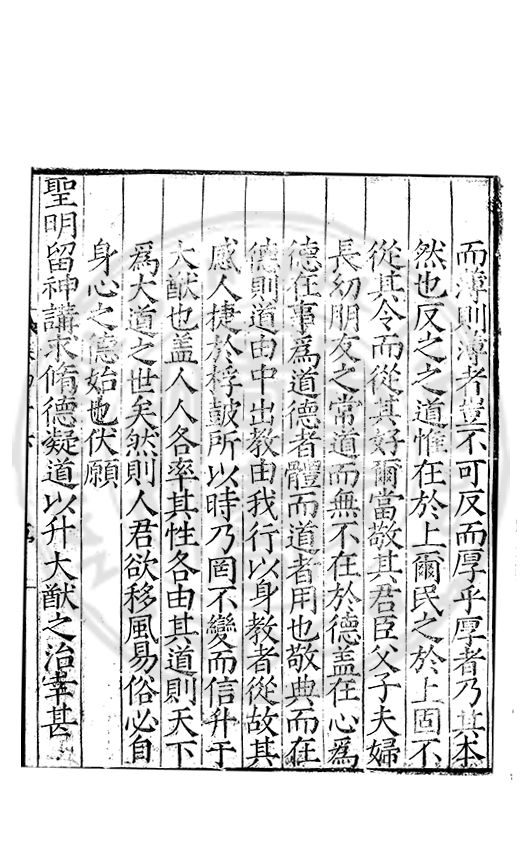 而薄則薄者豈不可反而厚乎厚者乃其本
然也反之之道惟在於上爾民之於上固不
從其令而從其好爾當敬其君臣父子夫婦
長幼朋友之常道而無不在於德盖在心爲
德在事爲道德者體而道者用也敬典而在
德則道由中出教由我行以身教者從故其
感人捷於桴鼓所以時乃罔不變而信升于
大猷也盖人人各率其性各由其道則天下
爲大道之世矣然則人君欲移風易俗必自
身心之德始也伏願
聖明留神講求脩德凝道以升大猷之治幸甚